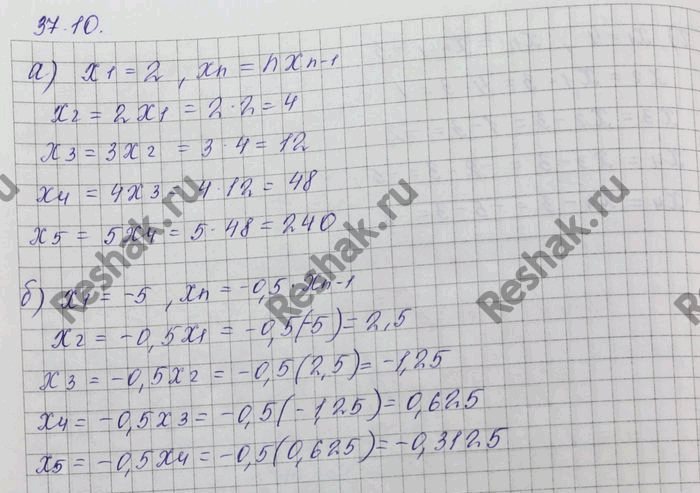 37.10.
а) x1 = 2 , xn = nxn-1
x2 = 2x1 = 2·2 = 4
x3 = 3x2 = 3·4 = 12
x4 = 4x3 = 4·12 = 48
x5 = 5x4 = 5·48 = 240
б) x1 = -5 , xn = -0,5·xn-1
x2 = -0,5x1 = -0,5(-5) = 2,5
x3 = -0,5x2 = -0,5(2,5) = -1,25
x4 = -0,5x3 = -0,5(-1,25) = 0,625
x5 = -0,5x4 = -0,5(0,625) = -0,3125
Reshak.ru
Reshak.ru
Reshak.ru